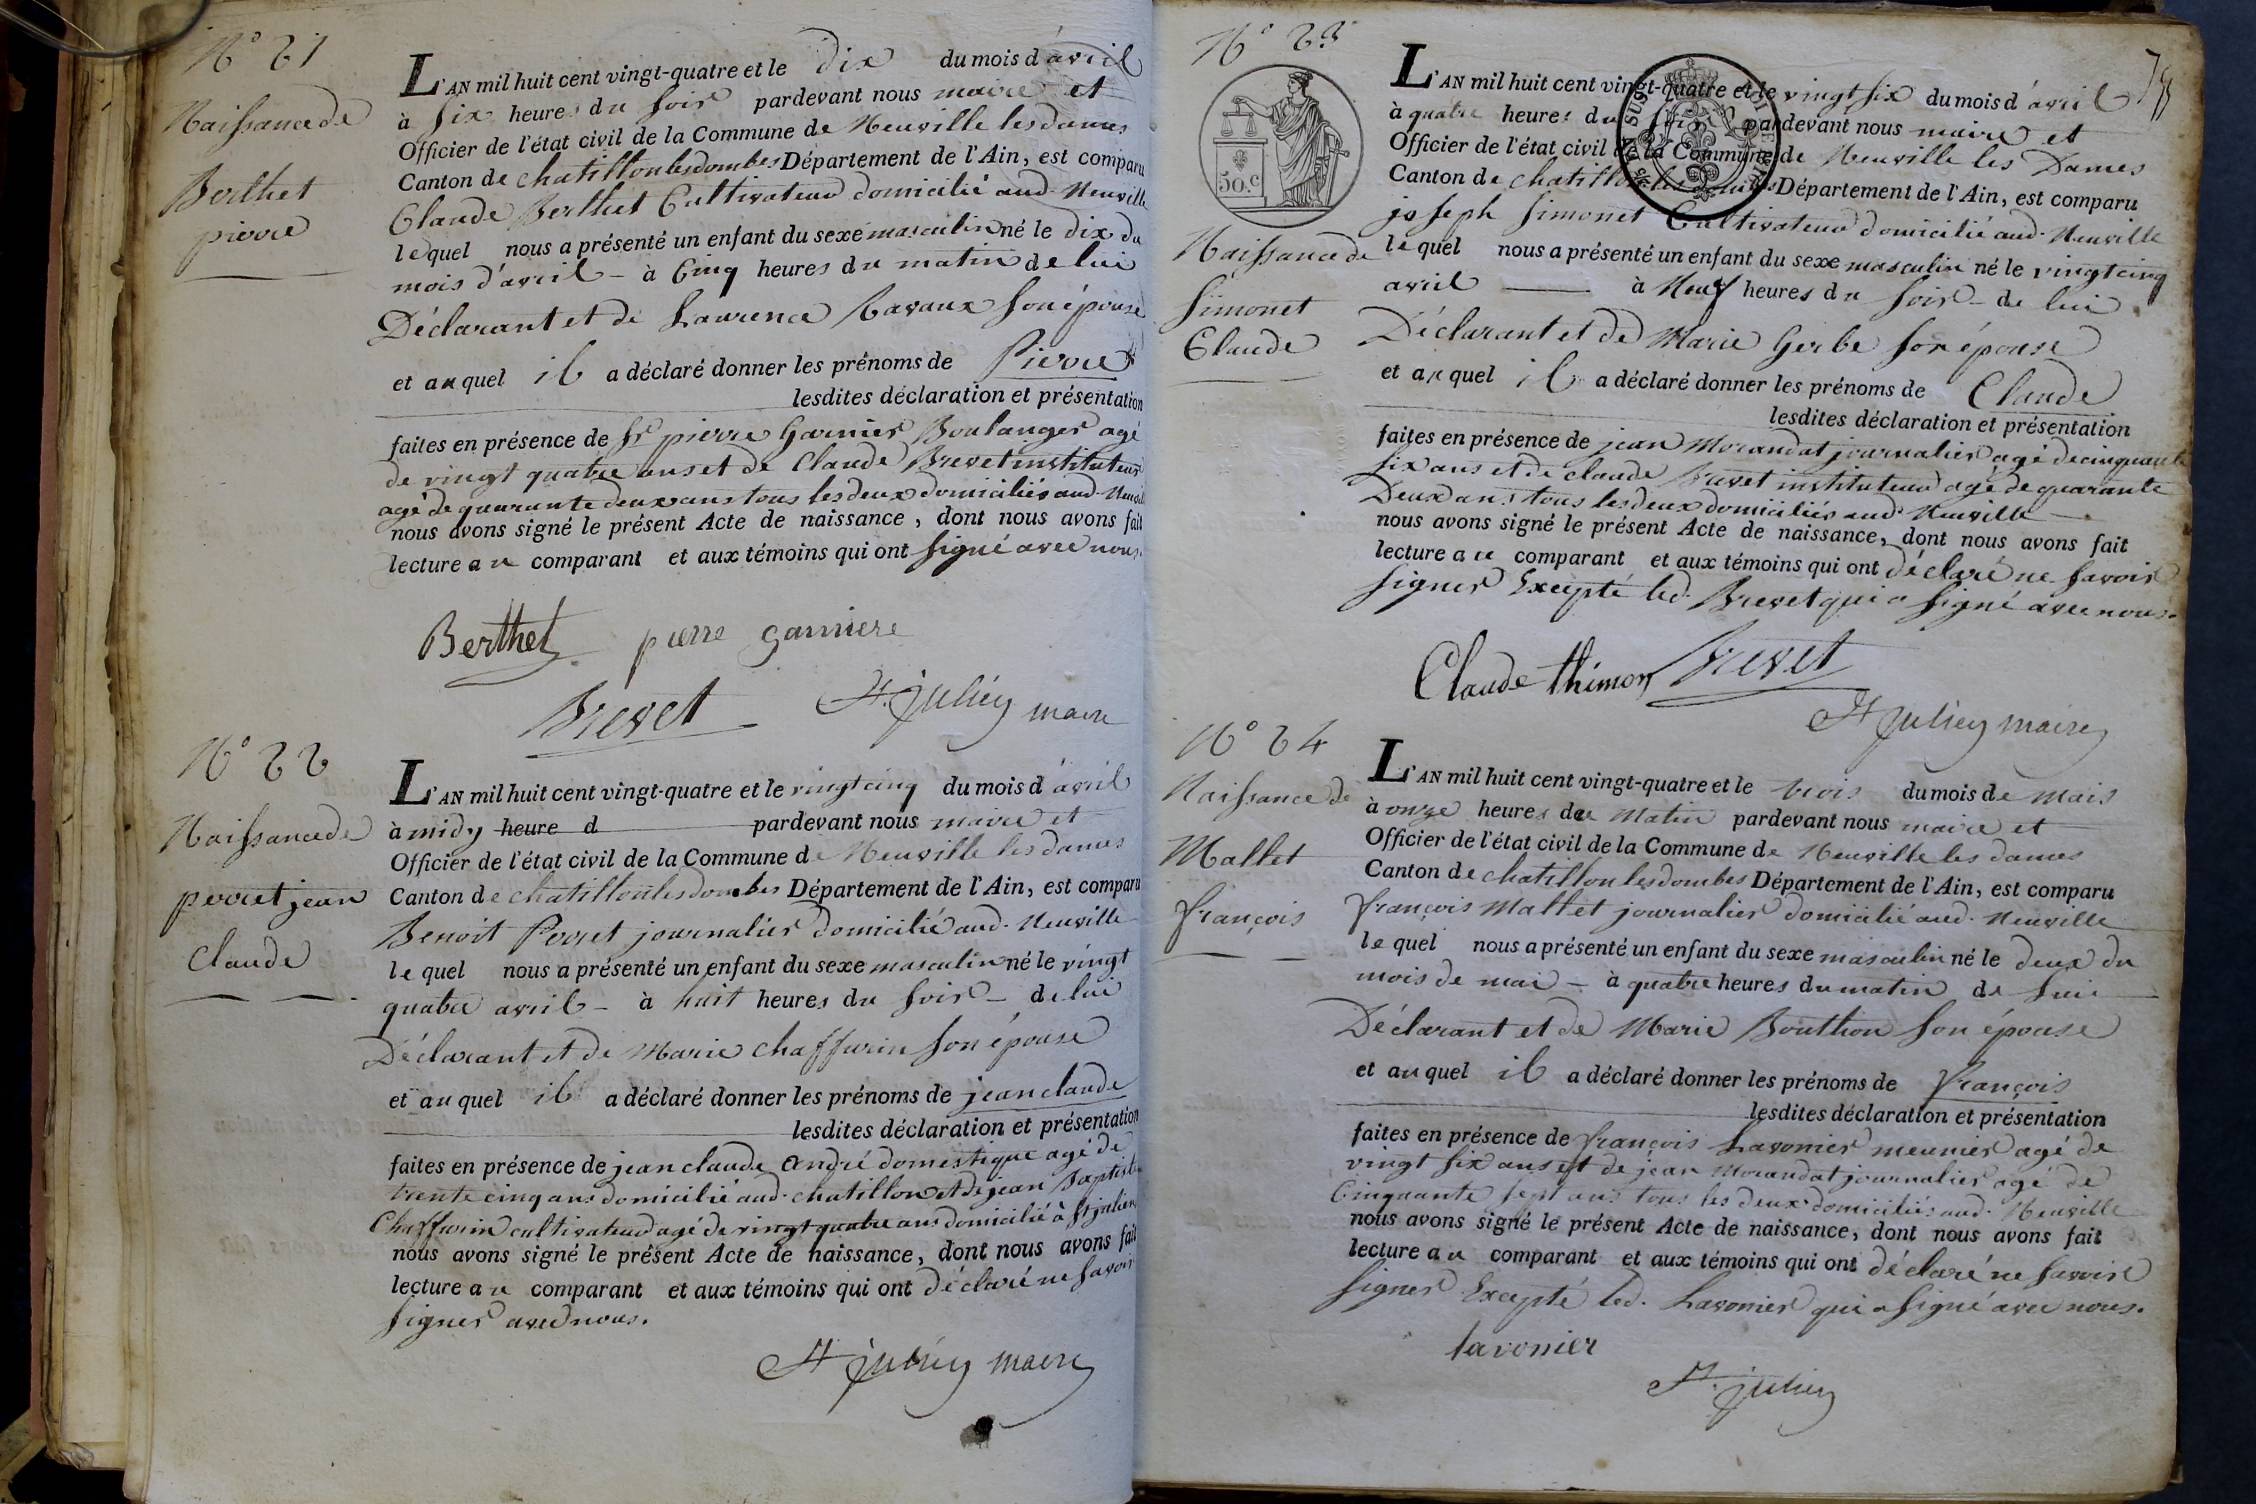 N° 21
Naissance de
Berthet
pierre
L'AN mil huit cent vingt-quatre et le dix du mois d'avril
à six heures du soir pardevant nous maire et
Officier de l'état civil de la Commune de Neuville les dames
Canton de chatillon les dombes Département de l'Ain, est comparu
Claude Berthet Cultivateur domicilié aud. Neuville
lequel nous a présenté un enfant du sexe masculin né le dix du
mois d'avril - à Cinq heures du matin de lui
Déclarant et de Laurence Ravaux son épouse
et auquel il a déclaré donner les prénoms de Pierre
lesdites déclaration et présentation
faites en présence de Sr pierre Garnier Boulanger agé
de vingt quatre ans et de Claude Brevet instituteur
agé de quarante deux ans tous les deux domiciliés aud. Neuville
nous avons signé le présent Acte de naissance, dont nous avons fait
lecture au comparant et aux témoins qui ont signé avec nous.
Berthet pierre garniere
Brevet St. julien maire
N° 22
Naissance de
perret jean
Claude
L'AN mil huit cent vingt-quatre et le vingt cinq du mois d'avril
à midy heure d pardevant nous maire et
Officier de l'état civil de la Commune de Neuville les dames
Canton de chatillon les dombes Département de l'Ain, est comparu
Benoit Perret journalier domicilié aud. Neuville
lequel nous a présenté un enfant du sexe masculin né le vingt
quatre avril - à huit heures du soir - de lui
Déclarant et de Marie chaffurin son épouse
et auquel il a déclaré donner les prénoms de jean claude
lesdites déclaration et présentation
faites en présence de jean claude andré domestique agé de
trente cinq ans domicilié aud. chatillon et de jean Baptiste
Chaffurin cultivateur agé de vingt quatre ans domicilié à St julien
nous avons signé le présent Acte de naissance, dont nous avons fait
lecture au comparant et aux témoins qui ont déclaré ne savoir
signer avec nous.
St julien maire
N° 23
78
50.c
Naissance de
Simonet
Claude
L'AN mil huit cent vingt-quatre et le vingt six du mois d'avril
à quatre heures du soir pardevant nous maire et
Officier de l'état civil de la Commune de Neuville les Dames
Canton de chatillon les dombes Département de l'Ain, est comparu
joseph Simonet Cultivateur domicilié aud. Neuville
lequel nous a présenté un enfant du sexe masculin né le vingt cinq
avril à Neuf heures du soir - de lui
Déclarant et de Marie Gerbe son épouse
et auquel il a déclaré donner les prénoms de Claude
lesdites déclaration et présentation
faites en présence de jean Morandat journalier agé de cinquante
six ans et de claude Brevet instituteur agé de quarante
Deux ans tous les deux domiciliés aud. Neuville
nous avons signé le présent Acte de naissance, dont nous avons fait
lecture au comparant et aux témoins qui ont déclaré ne savoir
signer Excepté led. Brevet qui a signé avec nous.
Claude thimon Brevet
St julien maire
N° 24
Naissance de
Mallet
françois
L'AN mil huit cent vingt-quatre et le trois du mois de mais
à onze heures du Matin pardevant nous maire et
Officier de l'état civil de la Commune de Neuville les dames
Canton de chatillon les dombes Département de l'Ain, est comparu
françois Mallet journalier domicilié aud. Neuville
lequel nous a présenté un enfant du sexe masculin né le deux du
mois de mai - à quatre heures du matin de lui
Déclarant et de Marie Bouthion son épouse
et auquel il a déclaré donner les prénoms de françois
lesdites déclaration et présentation
faites en présence de françois Lavonier meunier agé de
vingt six ans et de jean Morandat journalier agé de
Cinquante sept ans tous les deux domiciliés aud. Neuville
nous avons signé le présent Acte de naissance, dont nous avons fait
lecture au comparant et aux témoins qui ont déclaré ne savoir
signer Excepté led. Lavonier qui a signé avec nous.
lavonier
St. julien